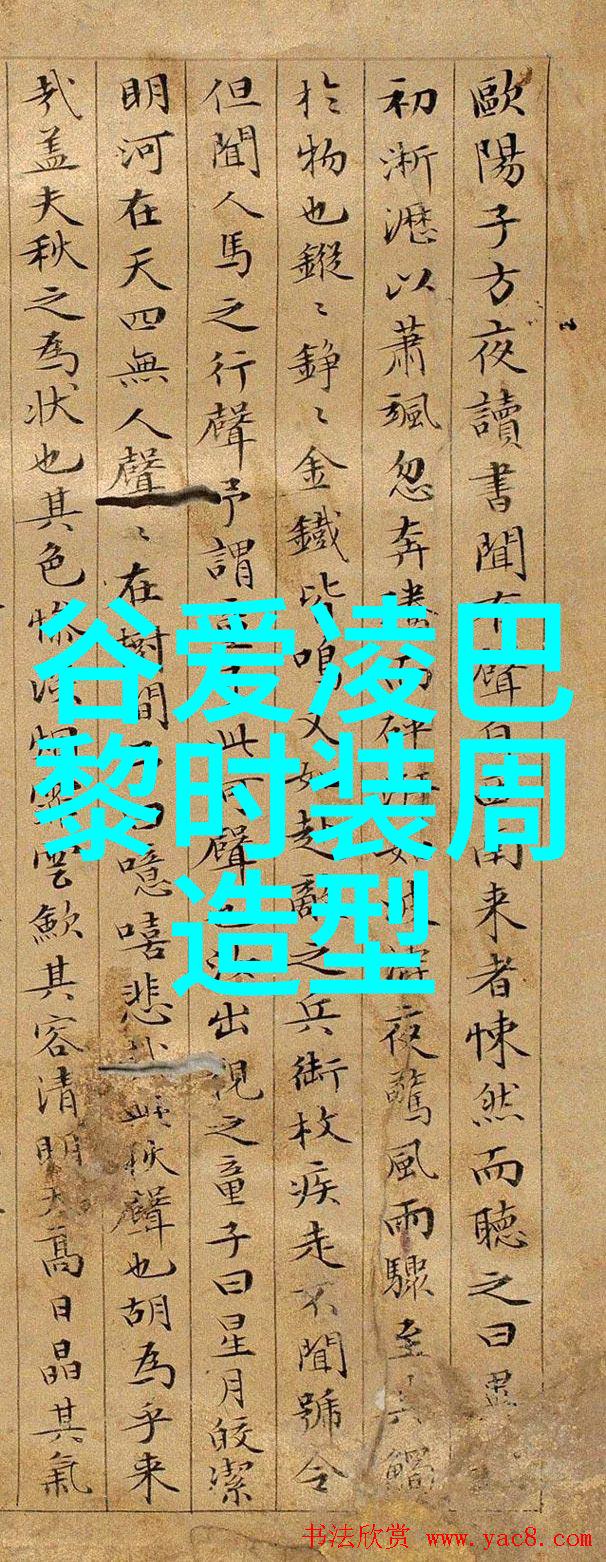 歐陽子方夜讀書聞有聲自西南来者悚然而聽之曰異
初淅瀝以蕭颯忽奔騰而砰湃如波濤夜驚風雨驟至其觸
於物也鏦〻錚〻金鐵皆鳴又如赴敵之兵銜枚疾走不聞號令
但聞人馬之行聲予謂童子此何聲也汝出視之童子曰星月皎潔
明河在天四無人聲〻在樹間予曰噫嘻悲哉此秋聲也胡為乎来
哉盖夫秋之為狀也其色慘淡烟霏雲歛其容清明天高日晶其氣
谷爱凌巴
黎时装周
造型
书法欣赏 www.yac8.com